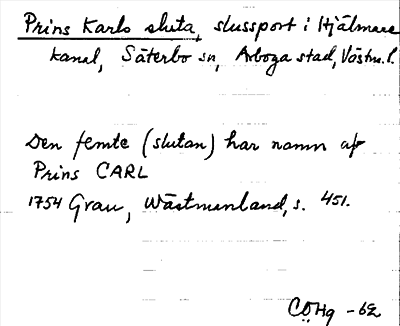 Prins Karls sluta, slussport i Hjälmare
kanal, Säterbo sn, Arboga stad, Västm. l.
Den femte (slutan) har namn af
Prins CARL
1754 Grau, Wästmanland, s. 451.
CÖHg -62